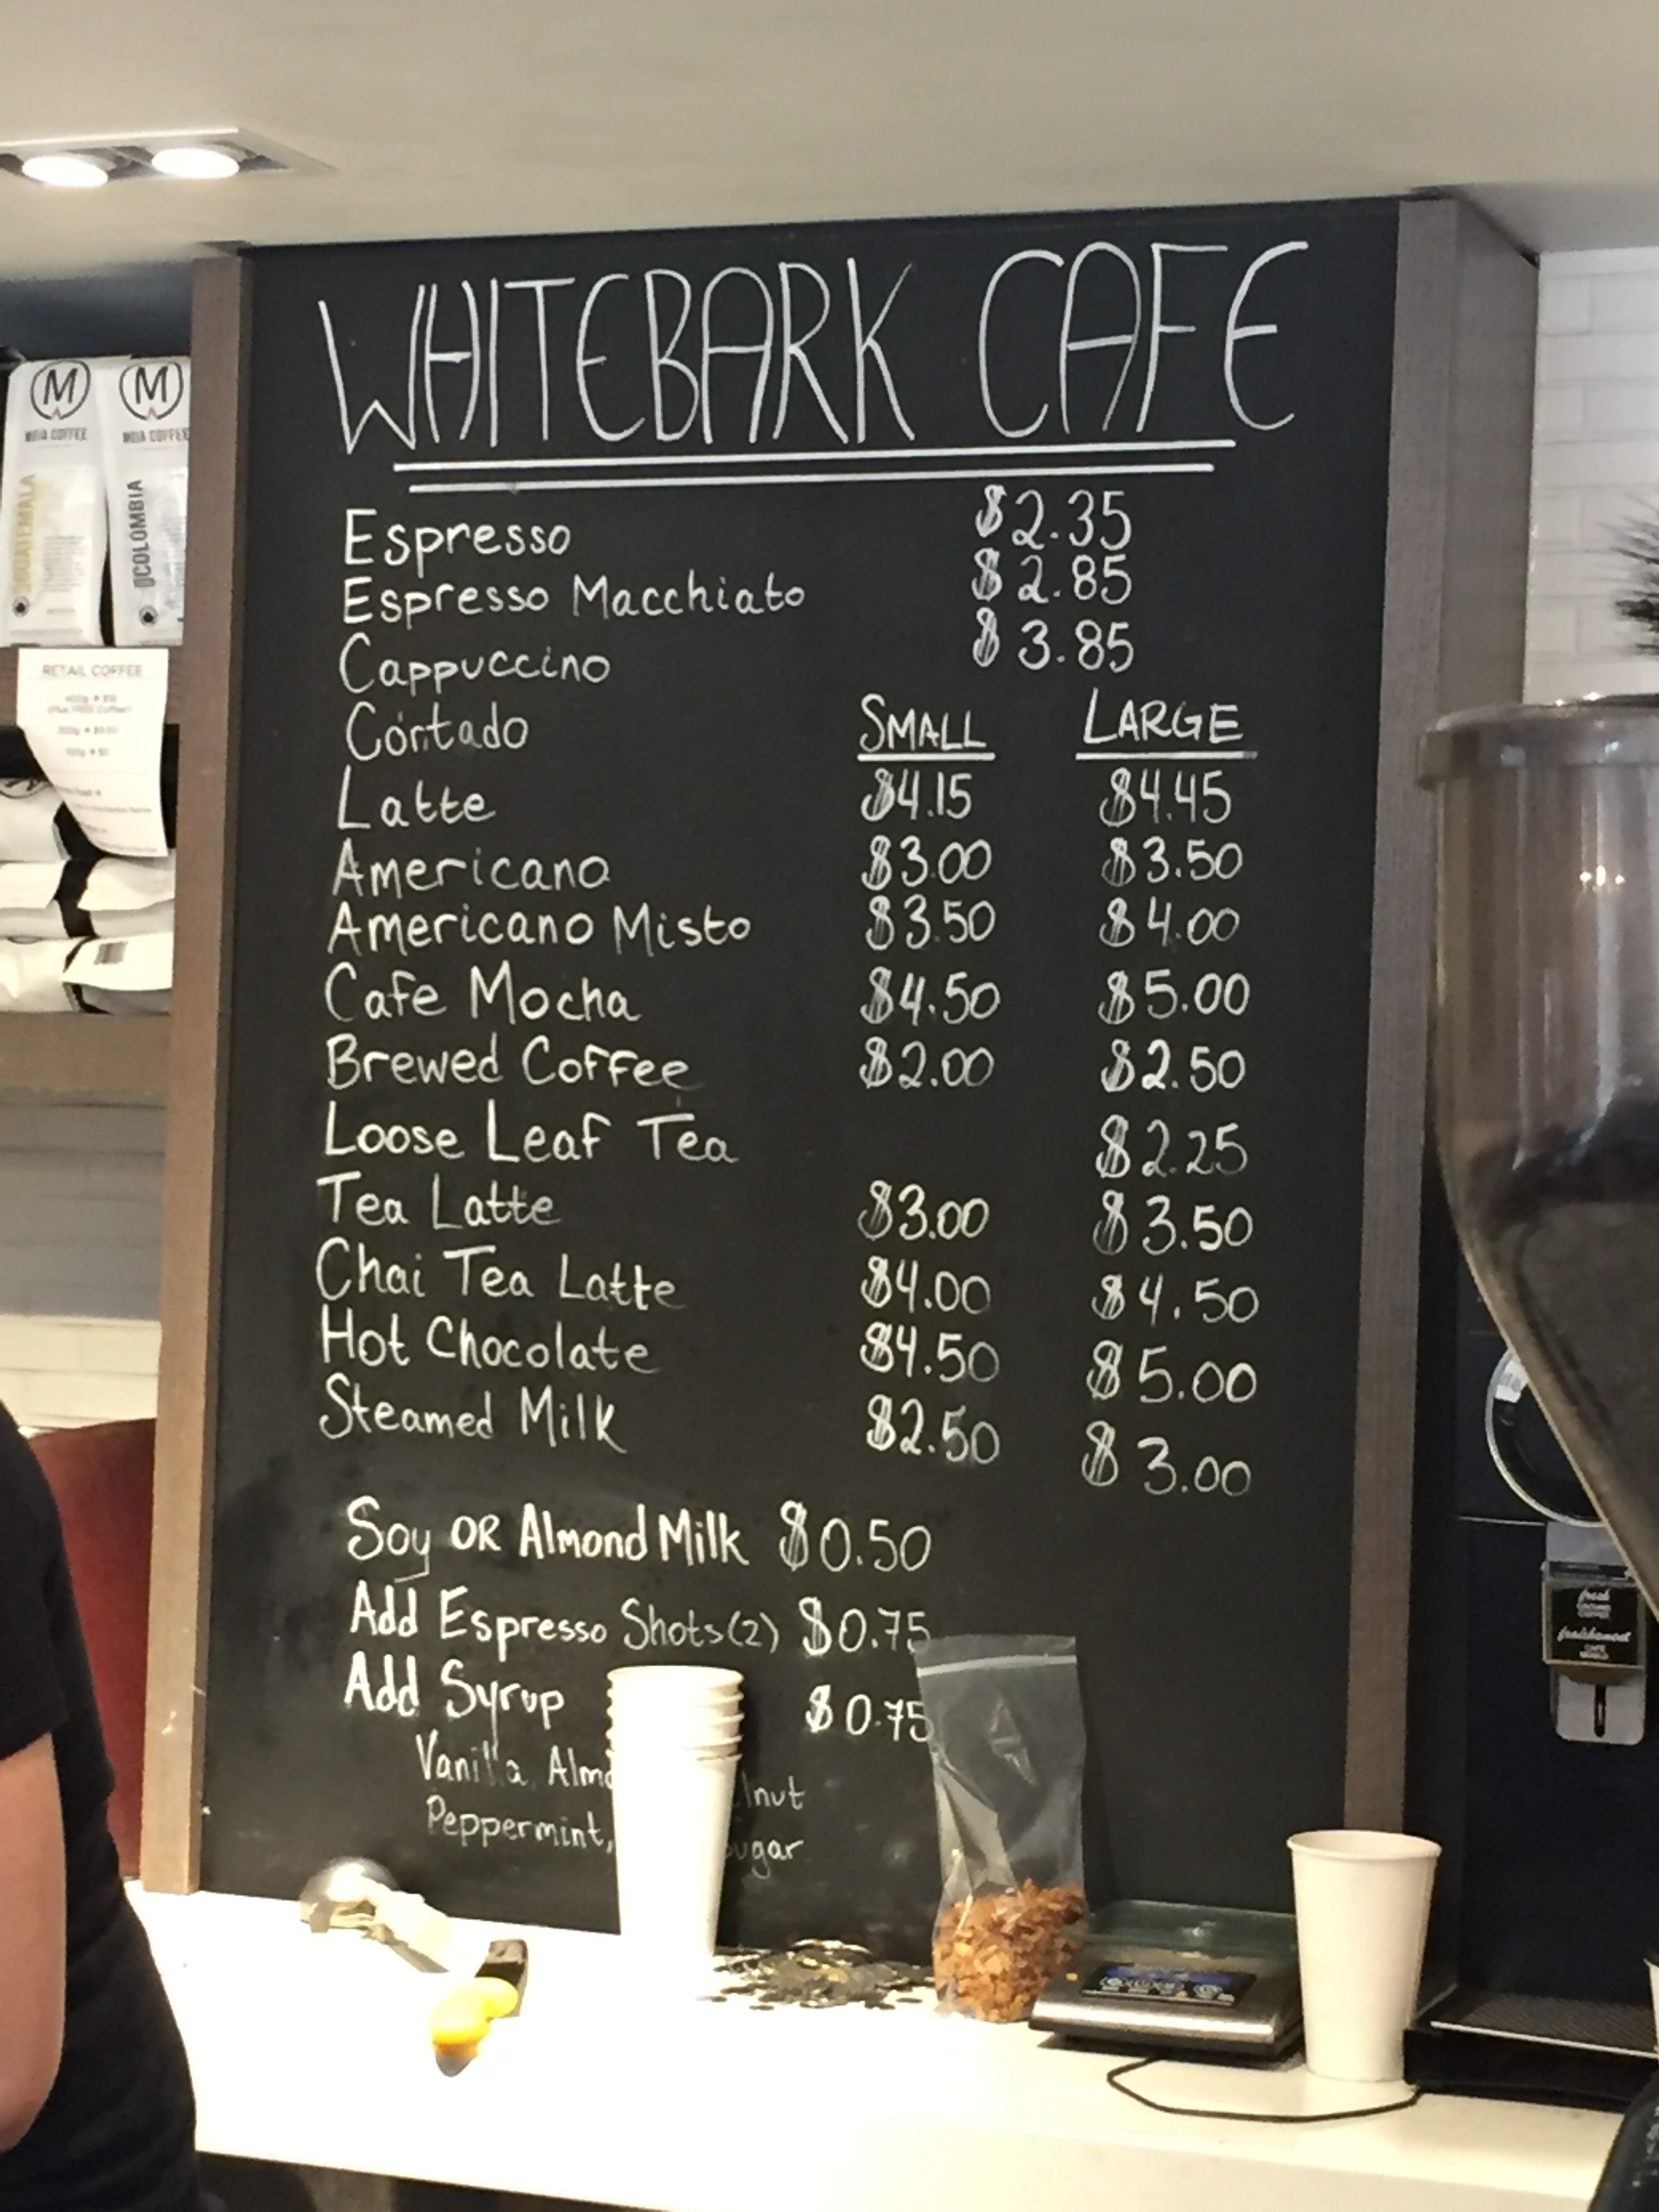 WHITEBARK CAFE
Espresso $2.35
Espresso Macchiato $2.85
Cappuccino $3.85
Cortado SMALL LARGE
Latte $4.15 $4.45
Americano $3.00 $3.50
Americano Misto $3.50 $4.00
Cafe Mocha $4.50 $5.00
Brewed Coffee $2.00 $2.50
Loose Leaf Tea $2.25
Tea Latte $3.00 $3.50
Chai Tea Latte $4.00 $4.50
Hot Chocolate $4.50 $5.00
Steamed Milk $2.50 $3.00
Soy OR Almond Milk $0.50
Add Espresso Shots (2) $0.75
Add Syrup $0.75
Vanilla, Almo lnut
Peppermint, ugar
M
MOJA COFFEE
GUATEMALA
M
MOJA COFFEE
COLOMBIA
RETAIL COFFEE
(Plus FREE Coffee!)